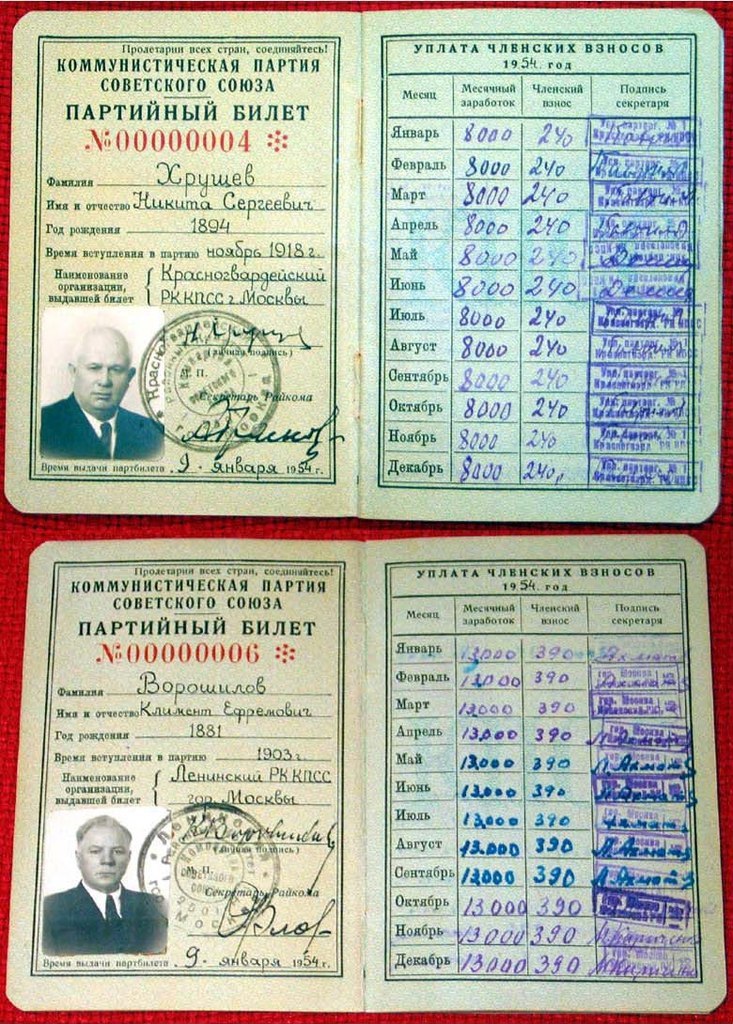 Пролетарии всех стран, соединяйтесь!
КОММУНИСТИЧЕСКАЯ ПАРТИЯ
СОВЕТСКОГО СОЮЗА
ПАРТИЙНЫЙ БИЛЕТ
№00000004
Фамилия Хрущев
Имя и отчество Никита Сергеевич
Год рождения 1894
Время вступления в партию ноябрь 1918 г.
Наименование организации, выдавшей билет Красногвардейский
РК КПСС г. Москвы
(личная подпись)
М. П.
Секретарь Райкома
Время выдачи партбилета 9 января 1954 г.
УПЛАТА ЧЛЕНСКИХ ВЗНОСОВ
1954 год
Месяц Месячный заработок Членский взнос Подпись секретаря
Январь 8000 240
Февраль 8000 240
Март 8000 240
Апрель 8000 240
Май 8000 240
Июнь 8000 240
Июль 8000 240
Август 8000 240
Сентябрь 8000 240
Октябрь 8000 240
Ноябрь 8000 240
Декабрь 8000 240
Пролетарии всех стран, соединяйтесь!
КОММУНИСТИЧЕСКАЯ ПАРТИЯ
СОВЕТСКОГО СОЮЗА
ПАРТИЙНЫЙ БИЛЕТ
№00000006
Фамилия Ворошилов
Имя и отчество Климент Ефремович
Год рождения 1881
Время вступления в партию 1903 г.
Наименование организации, выдавшей билет Ленинский РК КПСС
гор. Москвы
(личная подпись)
М. П.
Секретарь Райкома
Время выдачи партбилета 9 января 1954 г.
УПЛАТА ЧЛЕНСКИХ ВЗНОСОВ
1954 год
Месяц Месячный заработок Членский взнос Подпись секретаря
Январь 13000 390
Февраль 13000 390
Март 13000 390
Апрель 13000 390
Май 13000 390
Июнь 13000 390
Июль 13000 390
Август 13000 390
Сентябрь 13000 390
Октябрь 13000 390
Ноябрь 13000 390
Декабрь 13000 390